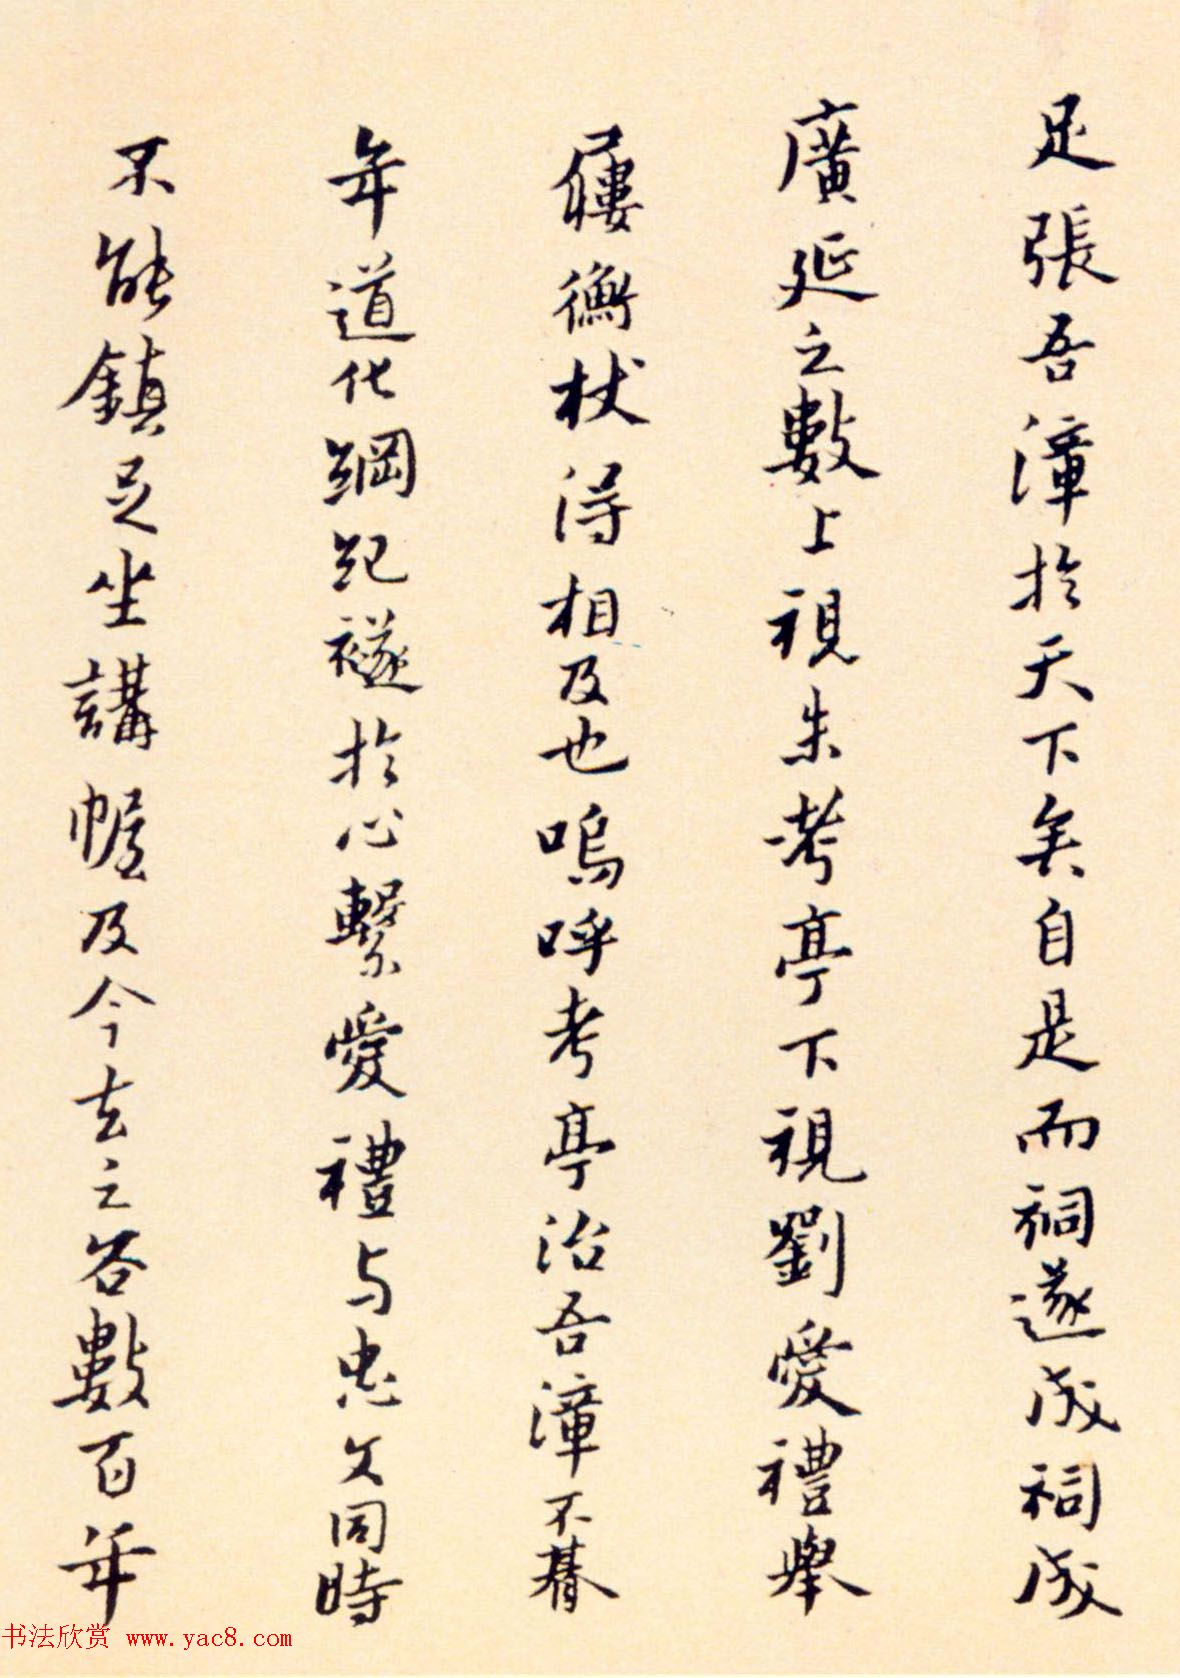 足張吾漳於天下矣自是而祠遂成祠成
廣延之數上視朱考亭下視劉愛禮舉
屨衡杖得相及也嗚呼考亭治吾漳不朞
年道化綱紀襚於心繫愛禮与忠文同時
不能鎮足坐講幄及今去之各數百年
书法欣赏 www.yac8.com